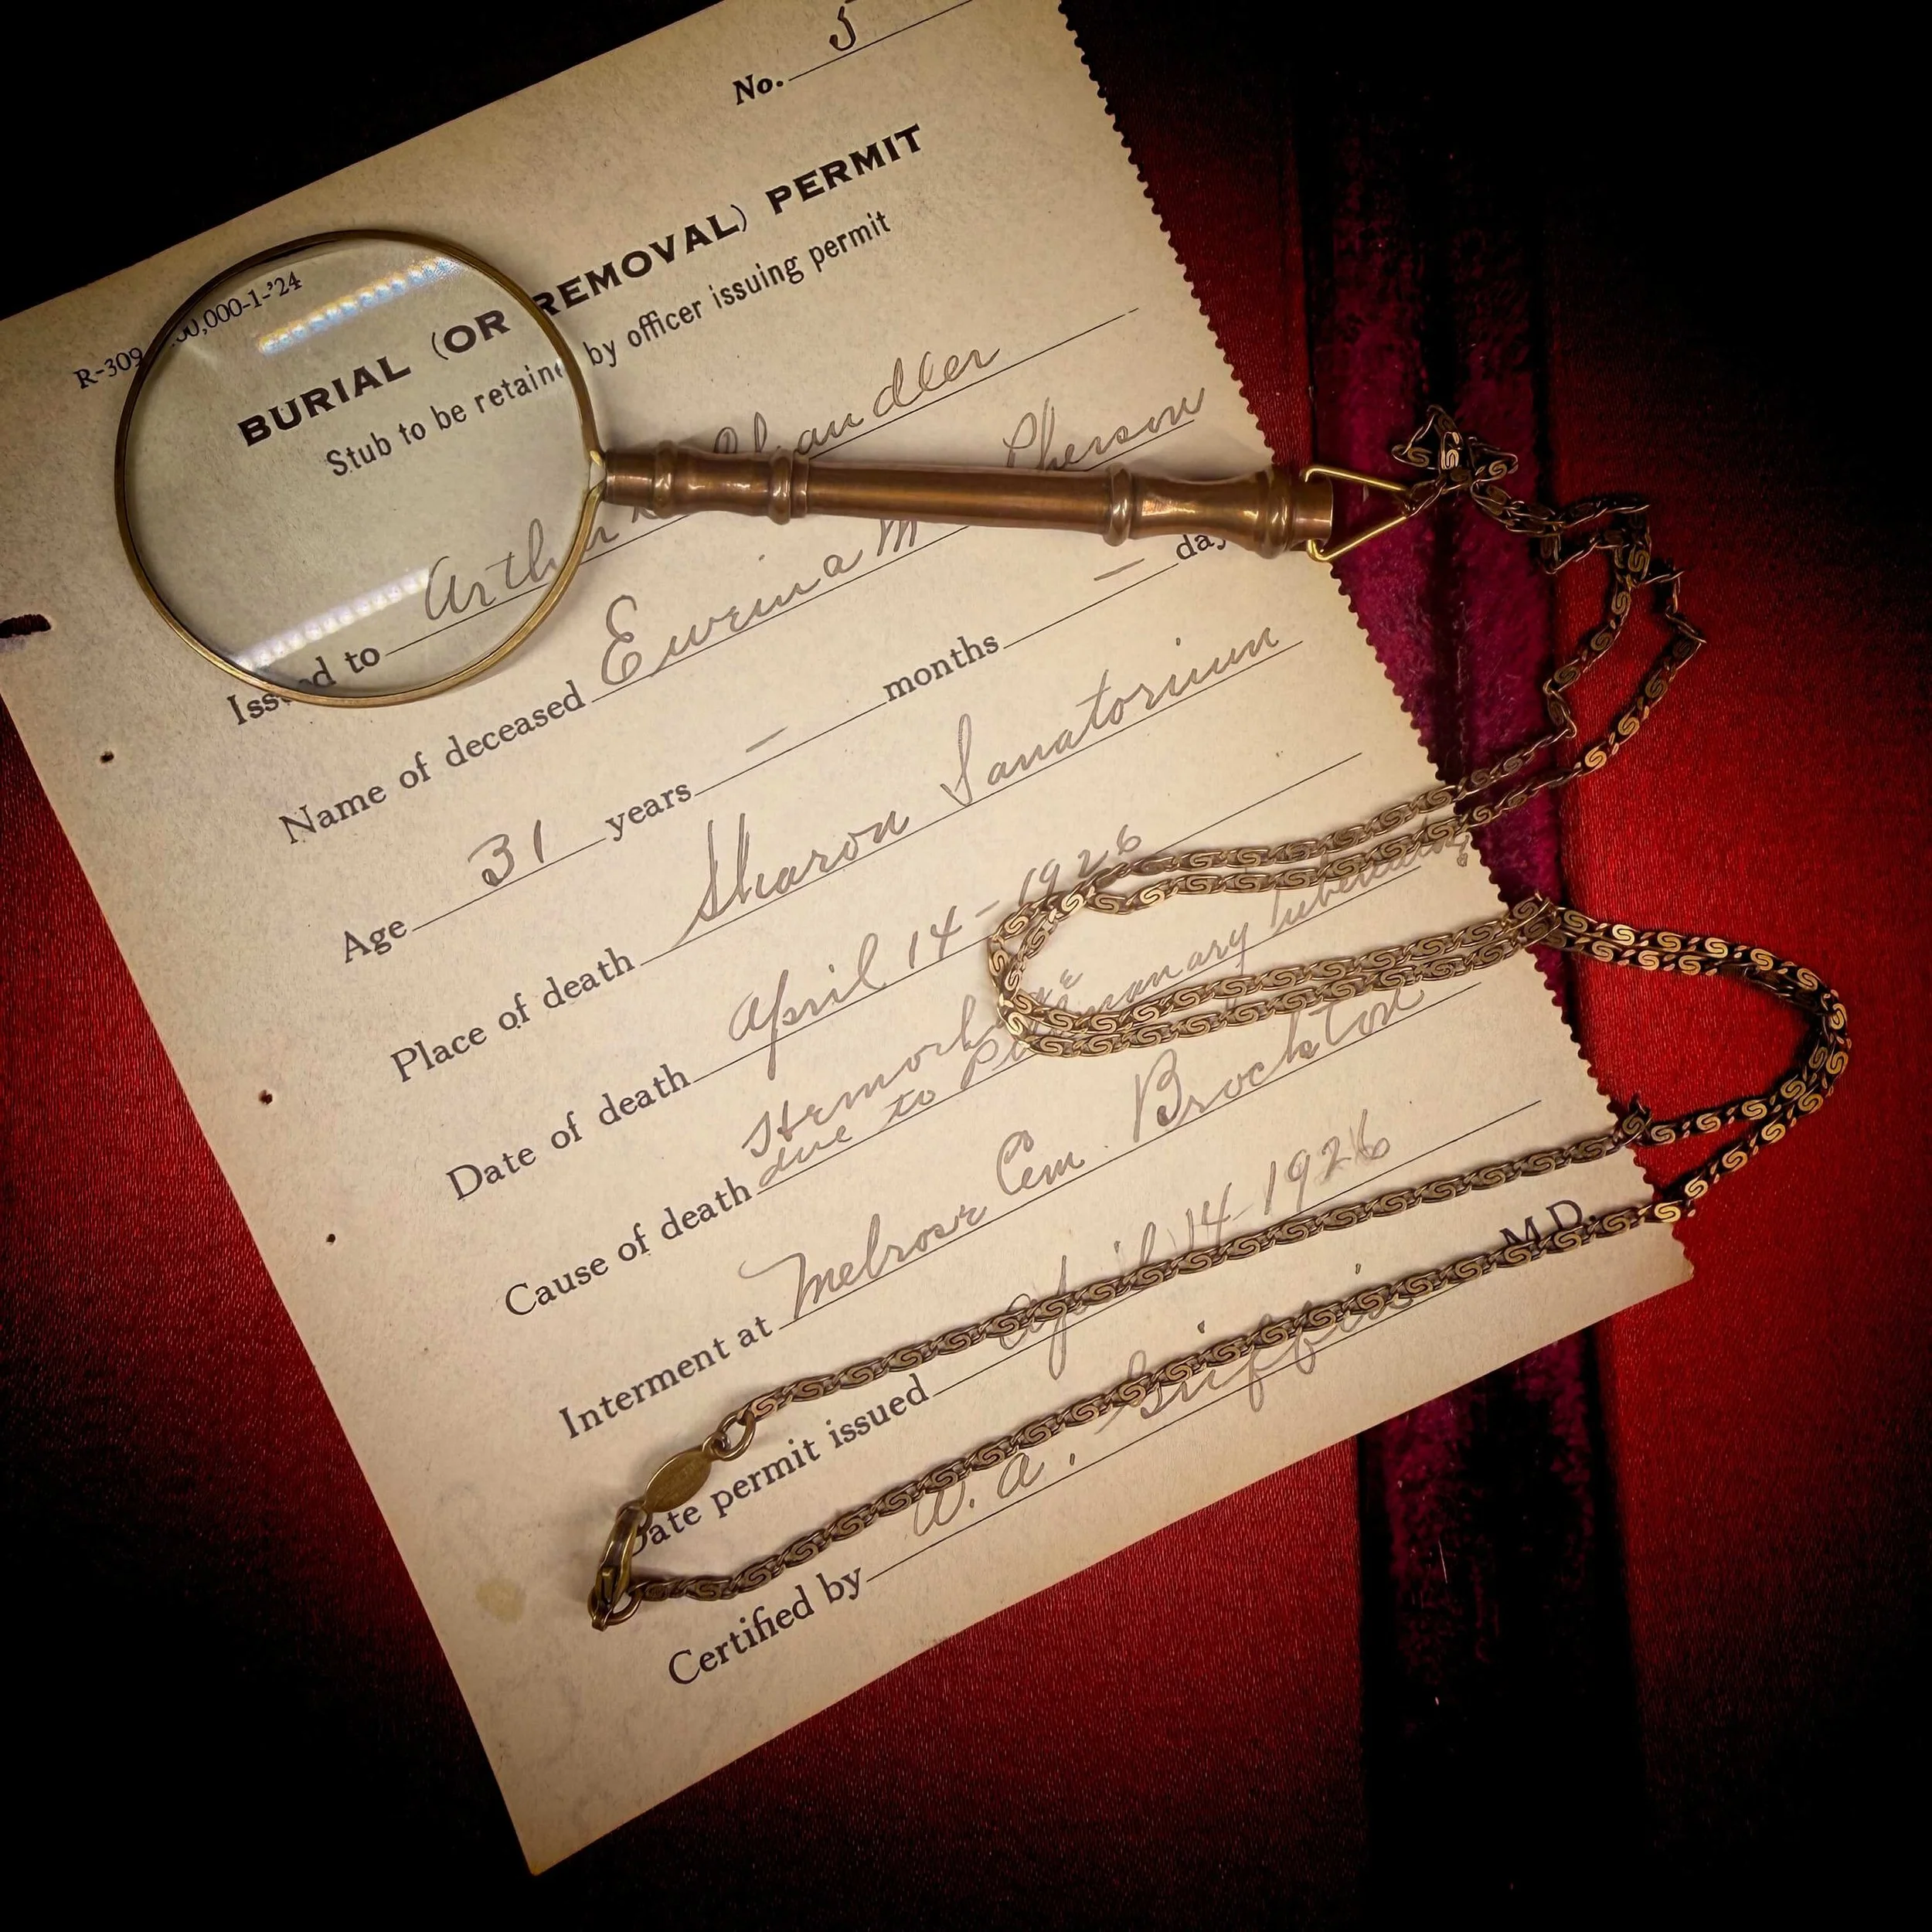 No. 5
R-309 00,000-1-'24
BURIAL (OR REMOVAL) PERMIT
Stub to be retained by officer issuing permit
Issued to Arthur Chandler
Name of deceased Ewena M Pherson
Age 31 years — months — day
Place of death Sharon Sanatorium
Date of death April 14-1926
Cause of death Hemorhage
due to Pulmonary tuberculosis
Interment at Melrose Cem. Brockton
Date permit issued April 14-1926
Certified by W. A. Griffin M.D.